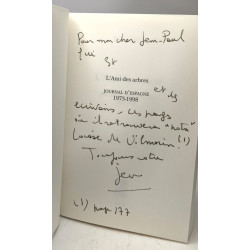 Pour mon cher Jean-Paul
qui est
L'Ami des arbres
et des
JOURNAL D'ESPAGNE
1973-1998
écrivains, ces pages
où il retrouvera "notre"
Louise de Vilmorin (1)
Toujours votre
Jean
(1) page 177